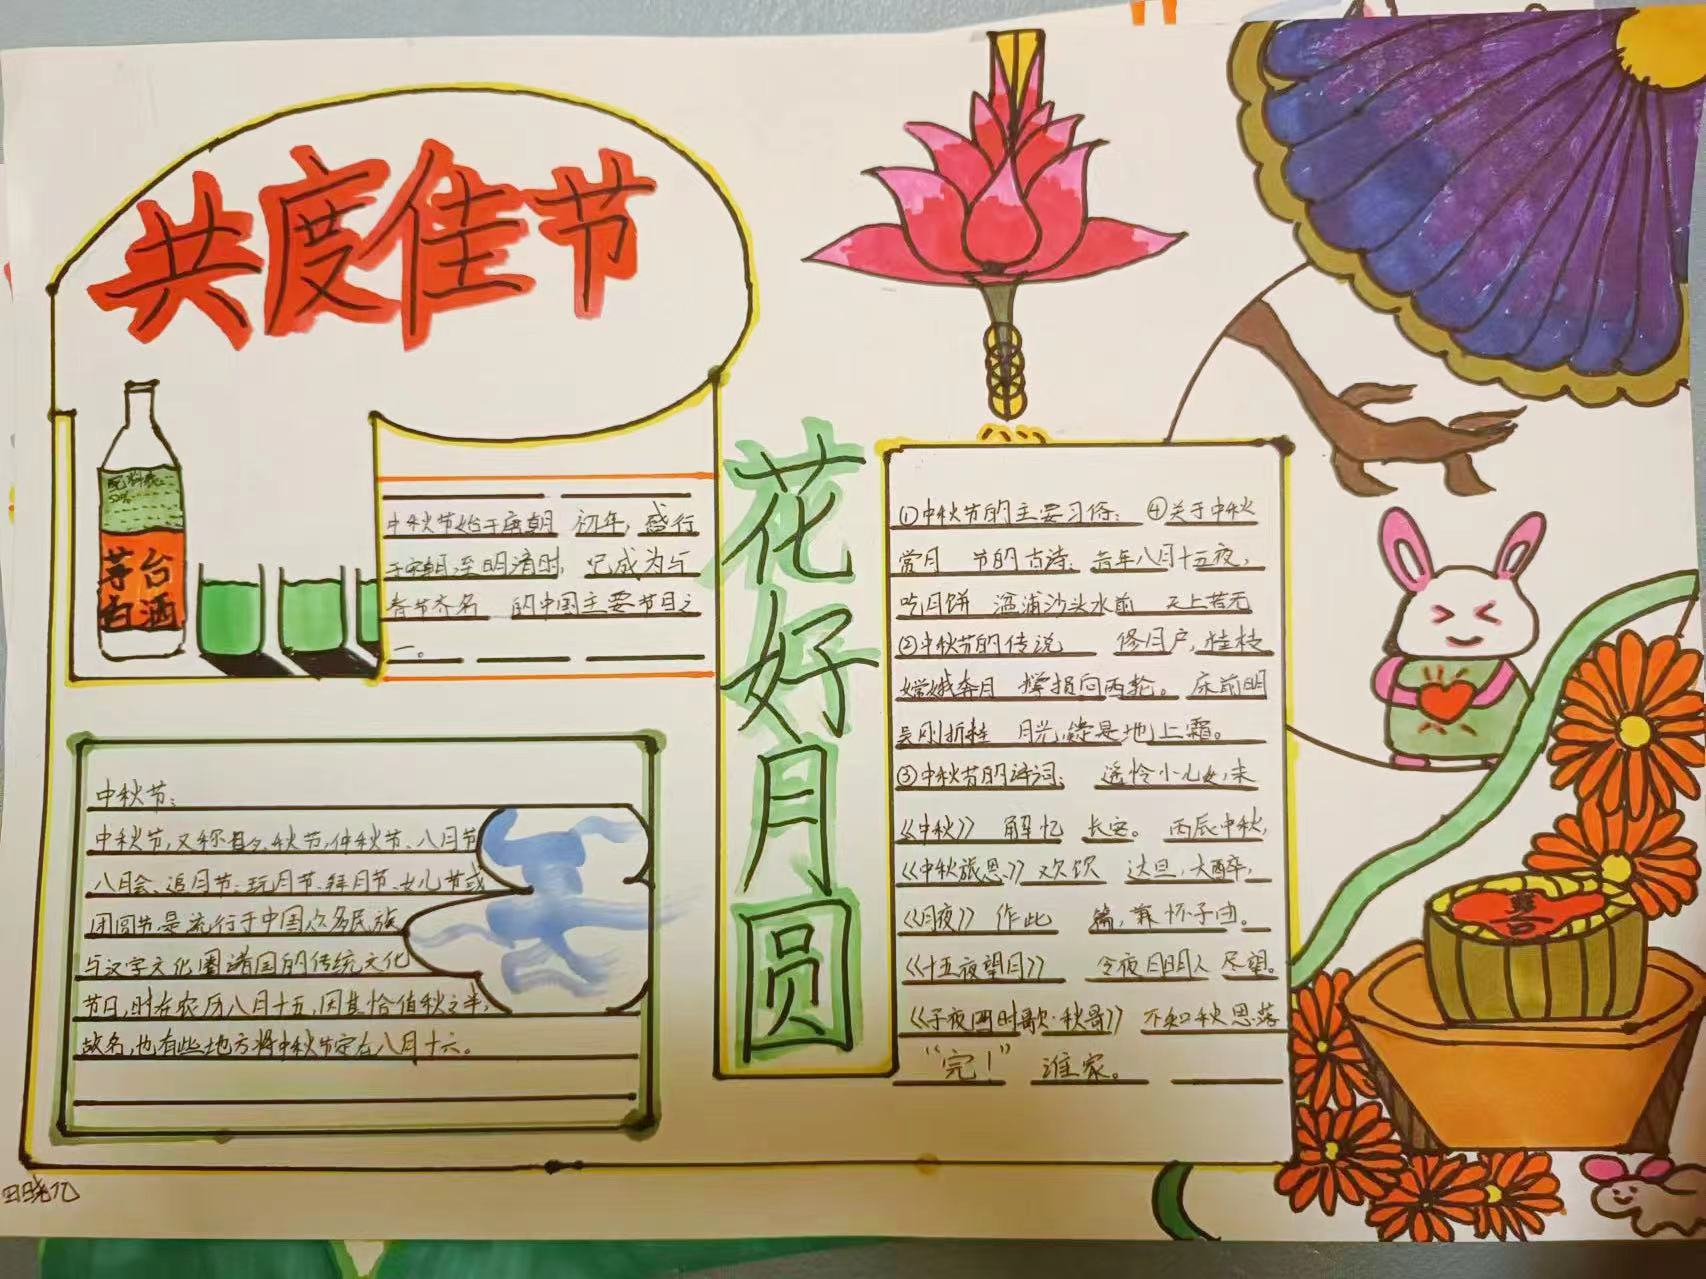 共度佳节
茅台
白酒
中秋节始于唐朝 初年，盛行
于宋朝至明清时，已成为与
春节齐名 的中国主要节目之
一。
花好月圆
中秋节：
中秋节，又称 秋节，仲秋节、八月节
八月会、追月节、玩月节、拜月节、女儿节或
团圆节，是流行于中国众多民族
与汉字文化圈诸国的传统文化
节日，时在农历八月十五，因其恰值秋之半，
故名，也有些地方将中秋节定在八月十六。
①中秋节的主要习俗： ④关于中秋
赏月 节的古诗：昔年八月十五夜，
吃月饼 湓浦沙头水前 天上若无
②中秋节的传说 修月户，桂枝
嫦娥奔月 撑损向西轮。 床前明
吴刚折桂 月光, 是地上霜。
③中秋节的诗词： 遥怜小儿女，未
《中秋》 解忆 长安。 丙辰中秋，
《中秋旅思》 欢饮 达旦，大醉，
《月夜》 作此 篇，兼怀子由。
《十五夜望月》 今夜月明人 尽望。
《子夜四时歌·秋哥》 不知秋思落
“完！” 谁家。